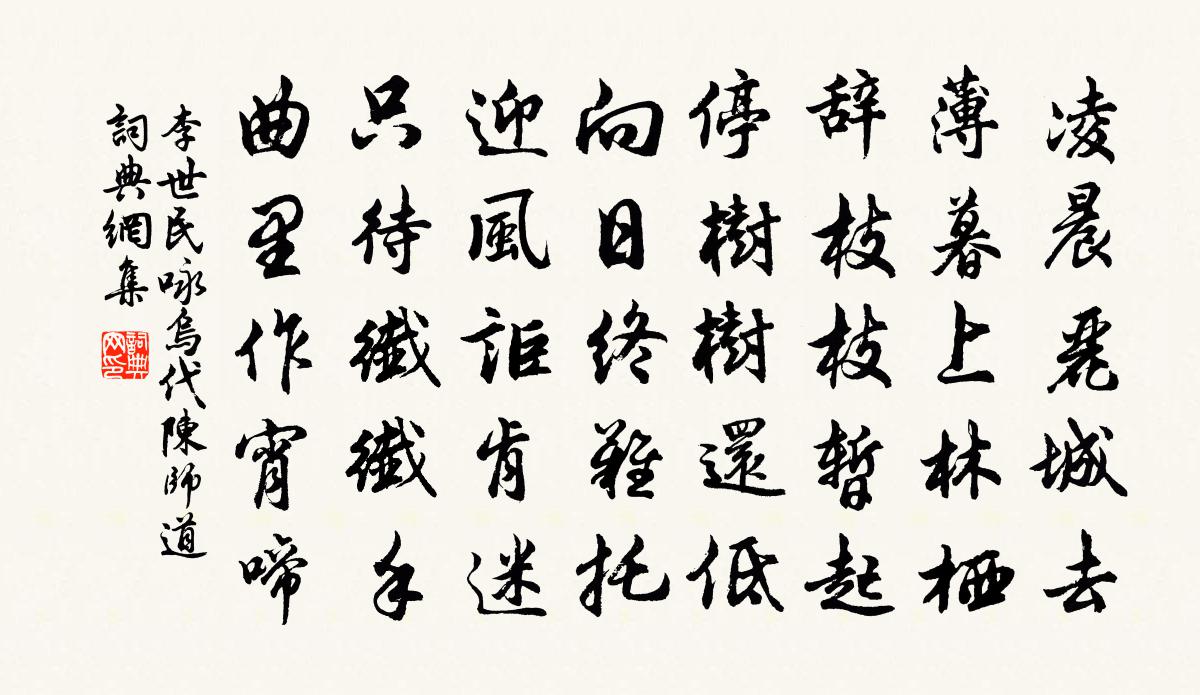 凌晨麗城去
薄暮上林栖
辞枝枝暫起
停樹樹還低
向日终難托
迎風詎肯迷
只待纖纖手
曲里作宵啼
李世民咏烏代陳師道
詞典網集
詞典網印